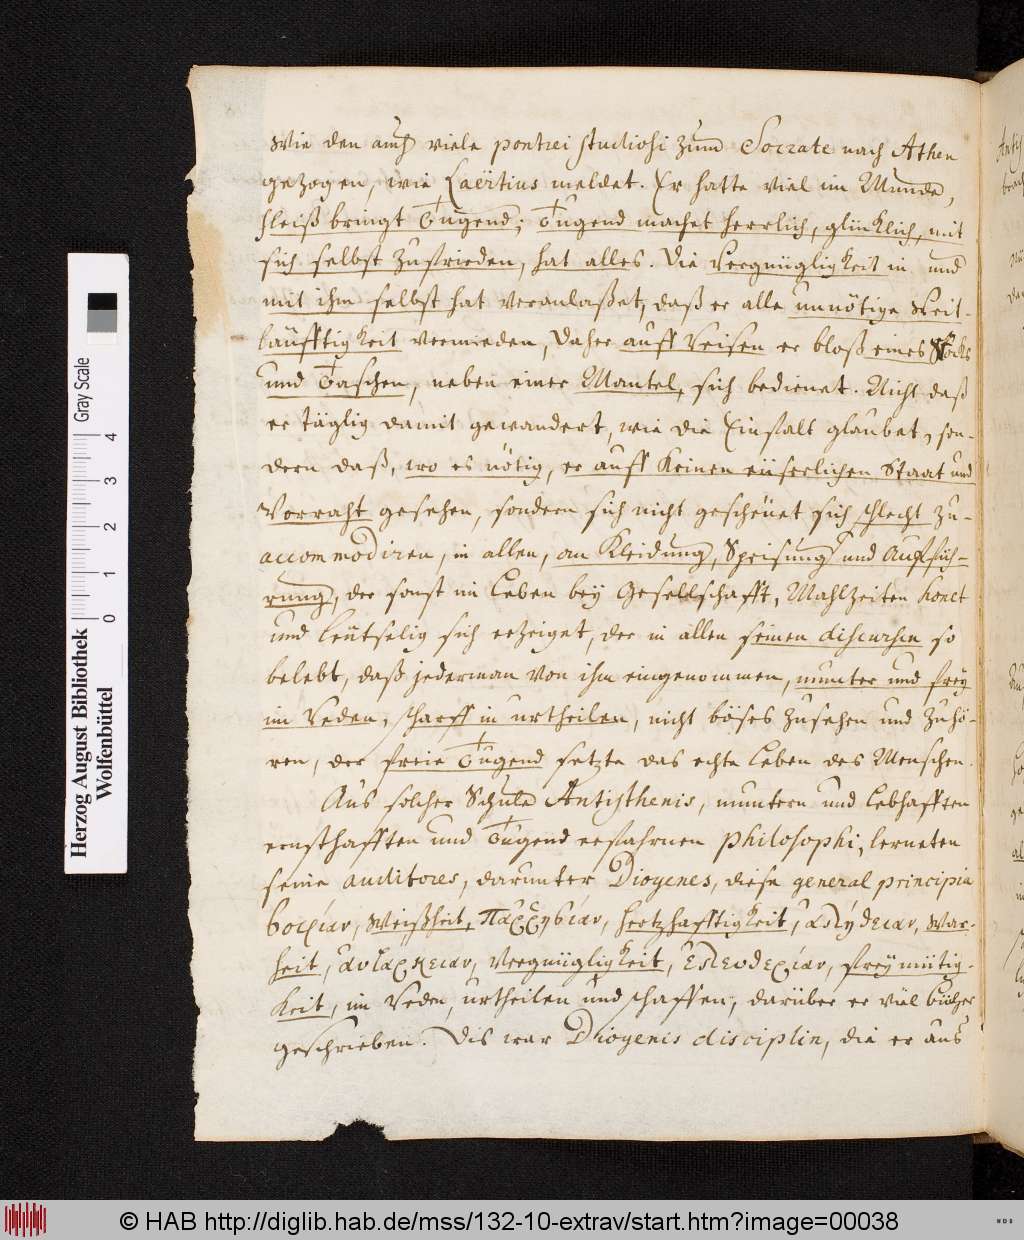 wie den auch viele pontici studiosi zum Socrate nach Athen
gezogen, wie Laërtius meldet. Er hatte viel im Munde,
fleiß bringt Tugend; Tugend machet herrlich, glücklich, mit
sich selbst zufrieden, hat alles. Die Vergnügligkeit in und
mit ihm selbst hat veranlaßet, daß er alle unnötige Weit-
läufftigkeit vermieden, daher auff Reisen er bloß eines Stocks
und Taschen, neben einer Mantel, sich bedienet. Nicht daß
er täglig damit gewandert, wie die Einfalt glaubet, son-
dern daß, wo es nötig, er auff keinen eüserlichen Staat und
Vorraht gesehen, sondern sich nicht gescheüet sich schlecht zu-
accommodiren, in allen, an Kleidung, Speisung und Aufführ-
rung, der sonst im Leben bey Gesellschafft, Mahlzeiten honet
und leütselig sich erzeiget, der in allen seinen discursen so
belebt, daß jederman von ihm eingenommen, munter und frey
im Reden, scharff in urtheilen, nicht böses zusehen und zuhö-
ren, der freie Tugend setzte das echte Leben des Menschen.
Aus solcher Schule Antisthenis, muntern und lebhafften
ernsthafften und Tugend erfahrnen philosophi, lerneten
seine auditores, darunter Diogenes, diese general principia
σοφίαν, Weißheit, παῤῥησίαν, hertzhafftigkeit, ἀλήθειαν, War-
heit, αὐτάρκειαν, Vergnügligkeit, ἐλευθερίαν, freymütig-
keit, im Reden, urtheilen und schaffen, darüber er viel bücher
geschrieben. Dis war Diogenis disciplin, die er aus
Herzog August Bibliothek
Wolfenbüttel
Gray Scale
0 1 2 3 4
© HAB http://diglib.hab.de/mss/132-10-extrav/start.htm?image=00038